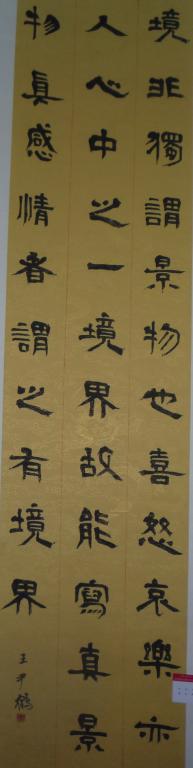 境非獨謂景物也喜怒哀樂亦
人心中之一境界故能寫真景
物真感情者謂之有境界